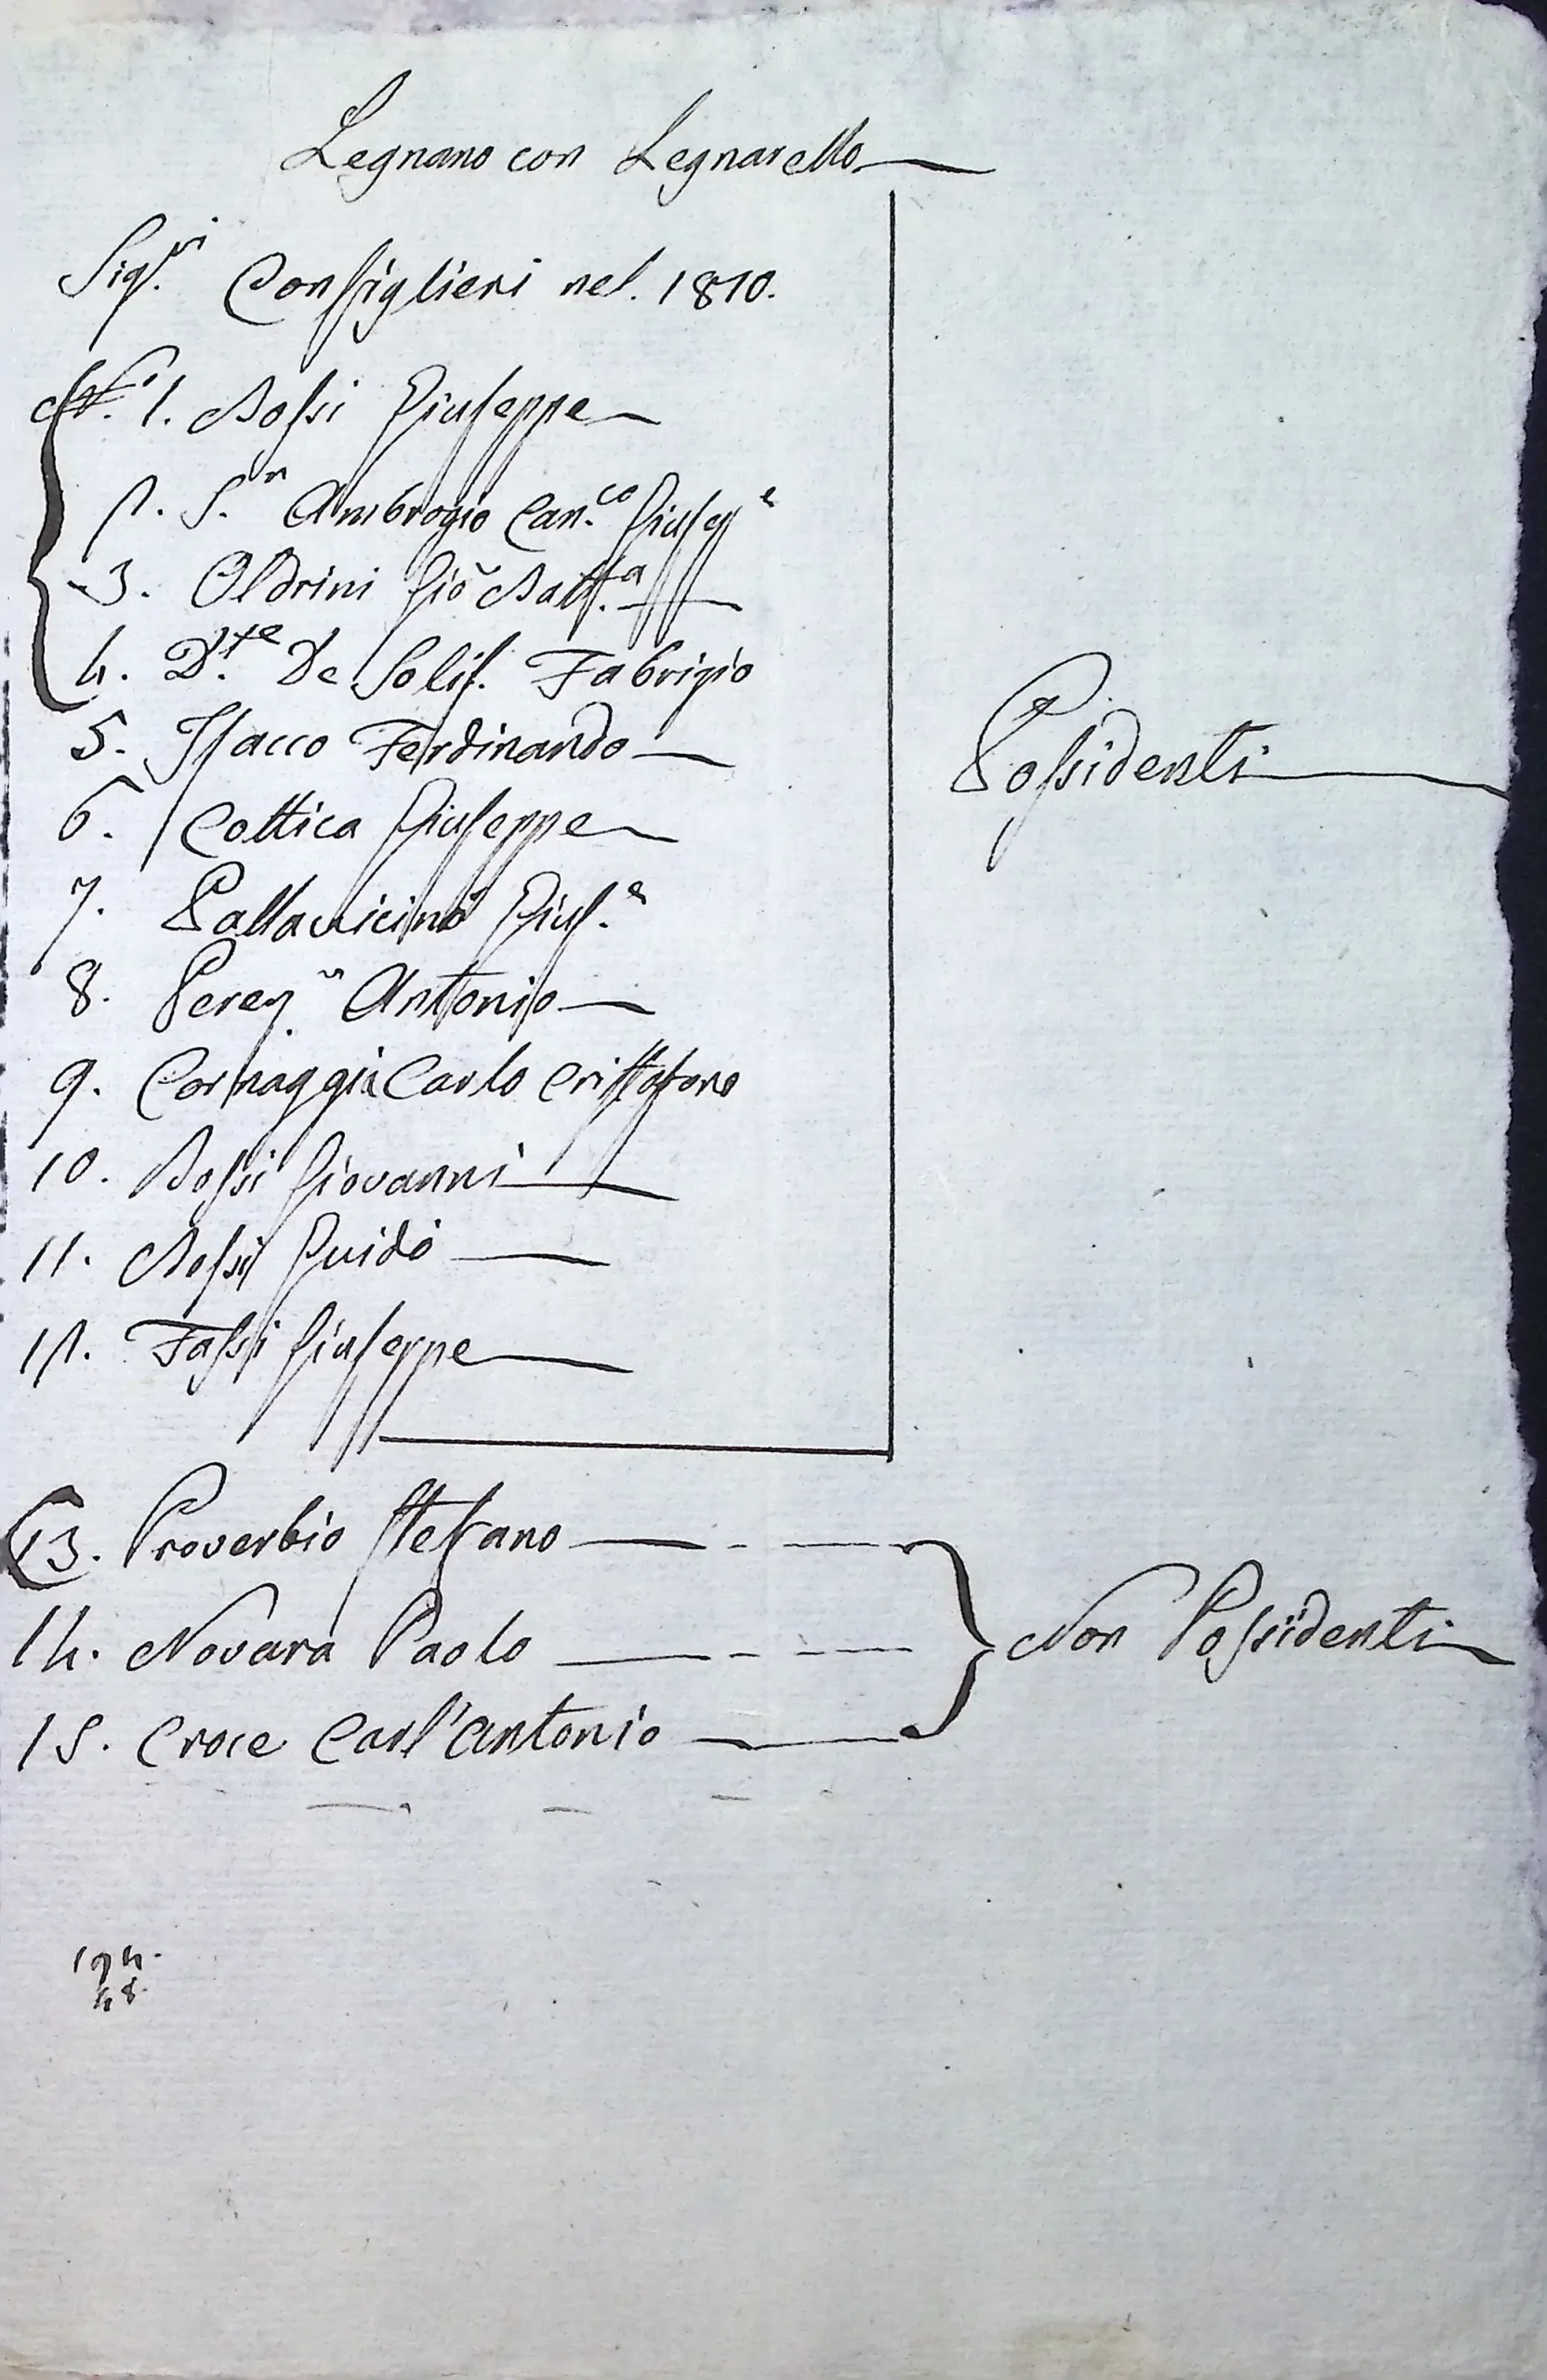 Legnano con Legnarello
Sig.ri Consiglieri nel. 1810.
N.o 1. Bossi Giuseppe
2. S.r Ambrogio Can.co Giusep.e
3. Oldrini Gio Batt.a
4. D.te De Solis. Fabrizio
5. Isacco Ferdinando
6. Cottica Giuseppe
7. Pallavicino Gius.e
8. Perez Antonio
9. Cornaggia Carlo Cristoforo
10. Bossi Giovanni
11. Bossi Guido
12. Fassi Giuseppe
Possidenti
13. Proverbio Stefano
14. Novara Paolo
15. Croce Carl'Antonio
Non Possidenti
194.
48.